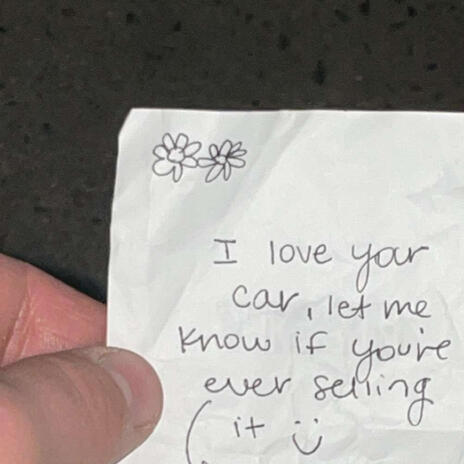 I love your
car, let me
know if you're
ever selling
it :)